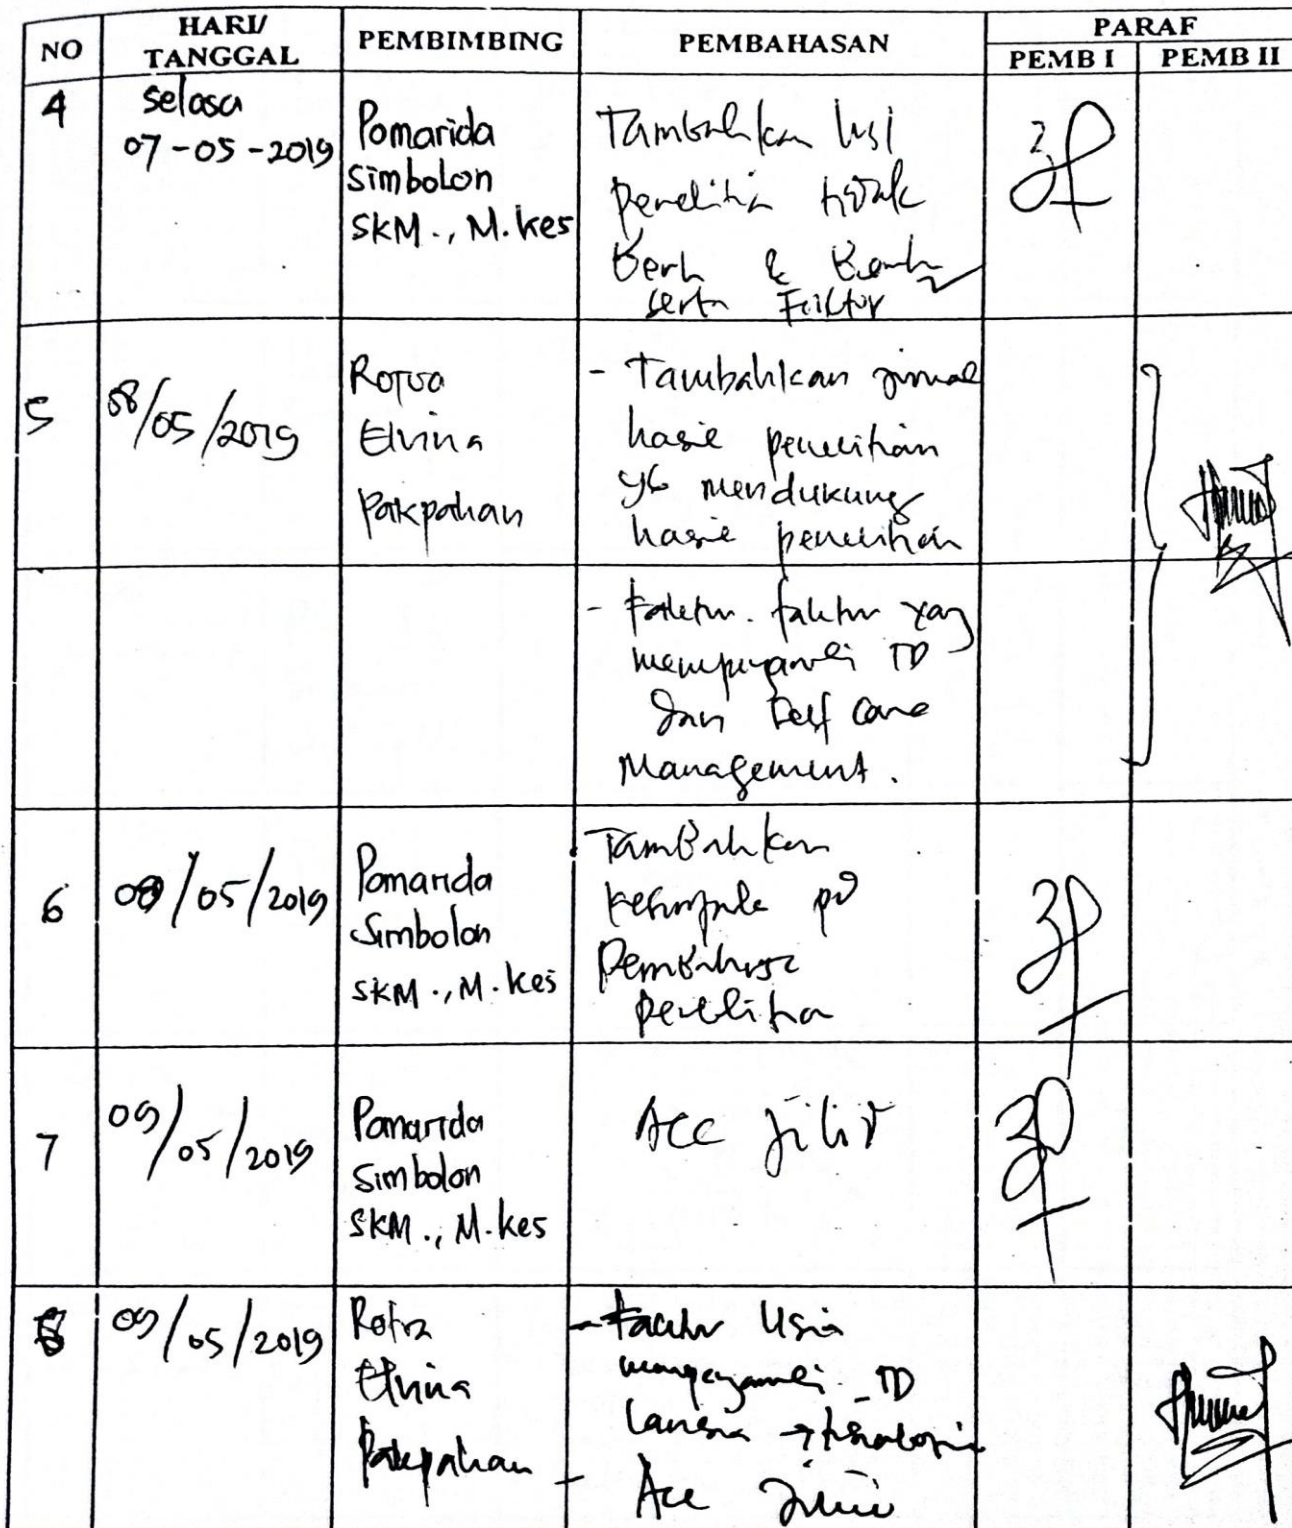 NO
HARI/
TANGGAL
PEMBIMBING
PEMBAHASAN
PARAF
PEMB I
PEMB II
4
Selasa
07-05-2019
Pomarida
Simbolon
SKM., M.Kes
Tambahkan
Penelitia tidak
&
serta Faktor
5
08/05/2019
Rotua
Elvina
Pakpahan
- Tambahkan jurnal
hasil penelitian
yg mendukung
hasil penelitian
- Faktor-faktor yang
mempengaruhi TD
dan Self Care
Management.
6
08/05/2019
Pomarida
Simbolon
SKM., M.Kes
Tambahkan
pd
penelitia
7
09/05/2019
Pomarida
Simbolon
SKM., M.Kes
Acc Jilid
8
09/05/2019
Rotua
Elvina
Pakpahan
- Faktor Usia
mempengaruhi TD
Lansia →
- Acc Jilid